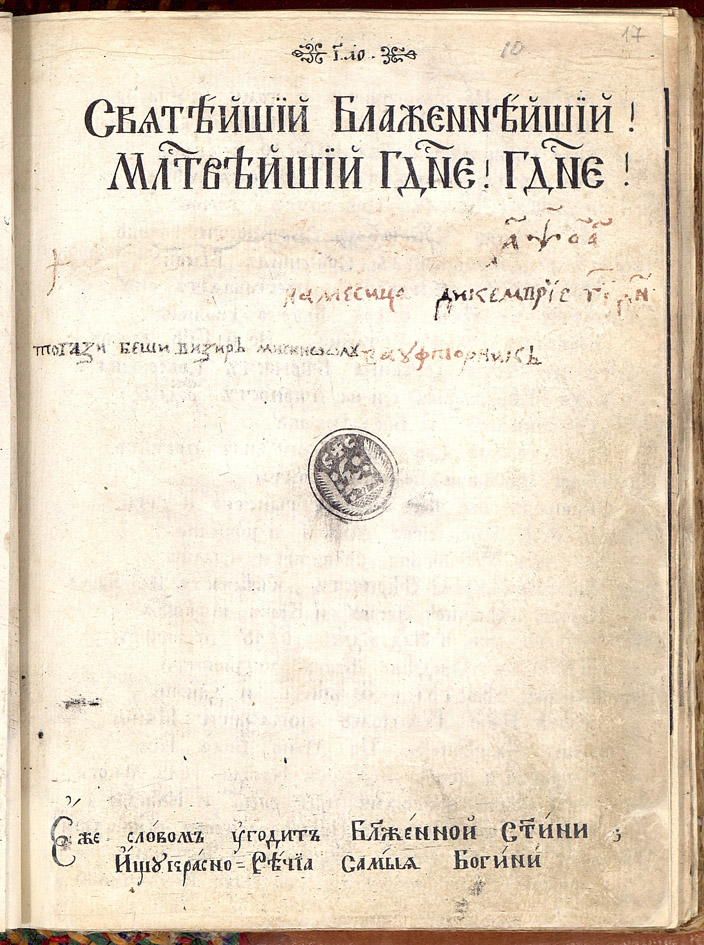 17
10
Свѧтѣйшїй Блаженнѣйшїй !
Мл҃твѣйшїй Гдⷭ҇не ! Гдⷭ҇не !
҂аѱоа
на месица дикемврїе гі
тогази беши визирь
Еже словомъ ᲂугодитъ Бл҃же́нной Ст҃и́ни ;
И҆щꙋкра́сно = Рѣ́чїа самы́ѧ Боги́ни